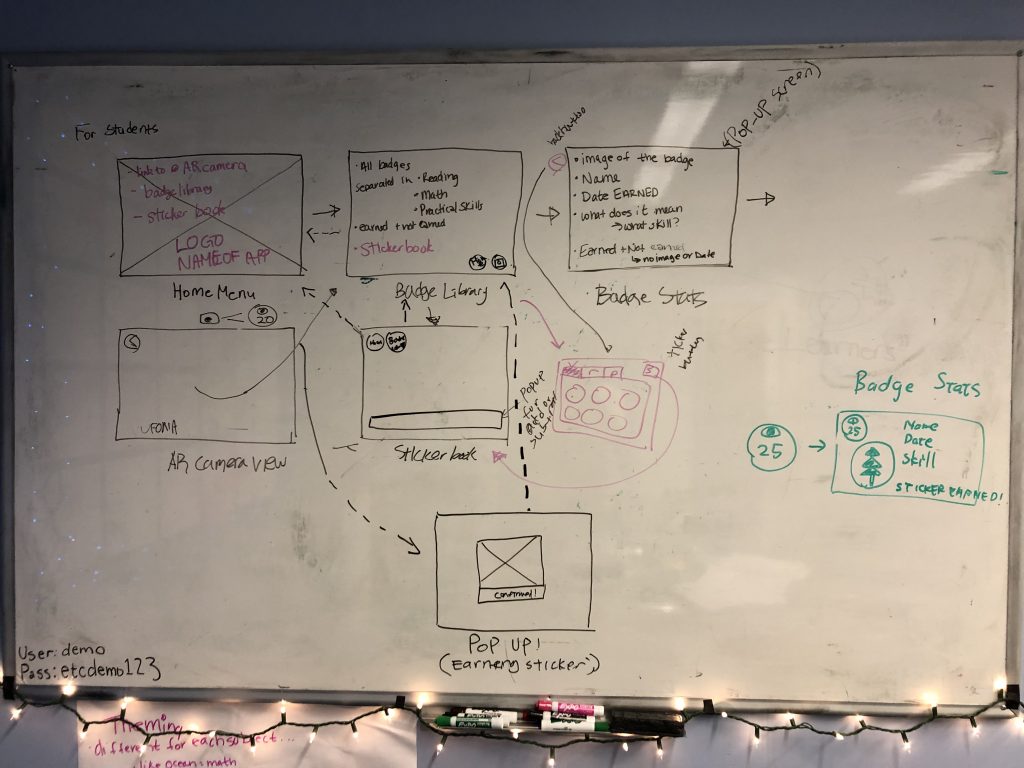 For Students
link to AR camera
- badge library
- sticker book
LOGO
NAME OF APP
Home Menu
All badges
separated in • Reading
• Math
• Practical Skills
• earned + not earned
• Sticker book
Badge Library
• image of the badge
• Name
• Date EARNED
• what does it mean
→ what skill?
• Earned + Not earned
↳ no image or Date
Badge Stats
(POP-UP screen)
20
AR camera view
Sticker book
Popup
for
Badge Stats
25
25
Name
Date
Skill
STICKER EARNED!
continue!
POP UP!
(Earning sticker)
User: demo
Pass: etcdemo123
EXPO
Theming
different for each subject...
like ocean = math